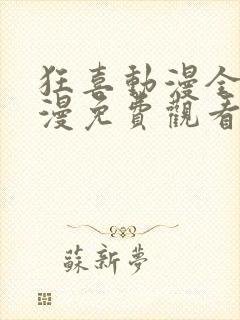 狂喜動漫全
漫免費觀看
蘇新夢